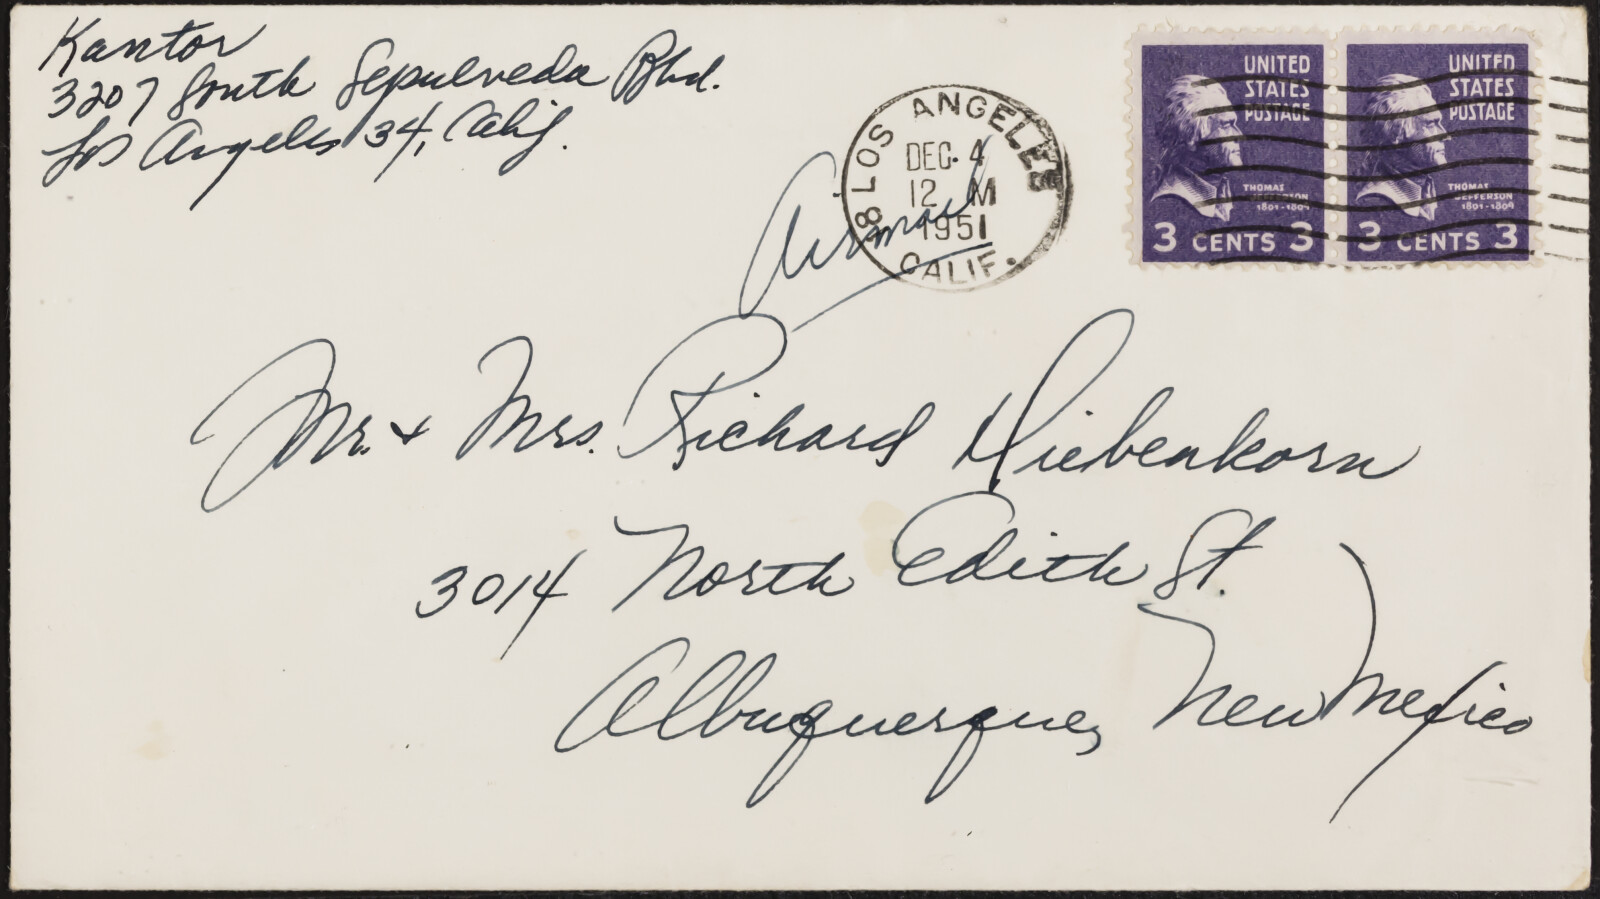 Kantor
3207 South Sepulveda Blvd.
Los Angeles 34, Calif.
Airmail
LOS ANGELES
8
DEC. 4
12 M
1951
CALIF.
UNITED
STATES
POSTAGE
THOMAS
JEFFERSON
1801-1809
3 CENTS 3
UNITED
STATES
POSTAGE
THOMAS
JEFFERSON
1801-1809
3 CENTS 3
Mr. & Mrs. Richard Diebenkorn
3014 North Edith St.
Albuquerque, New Mexico